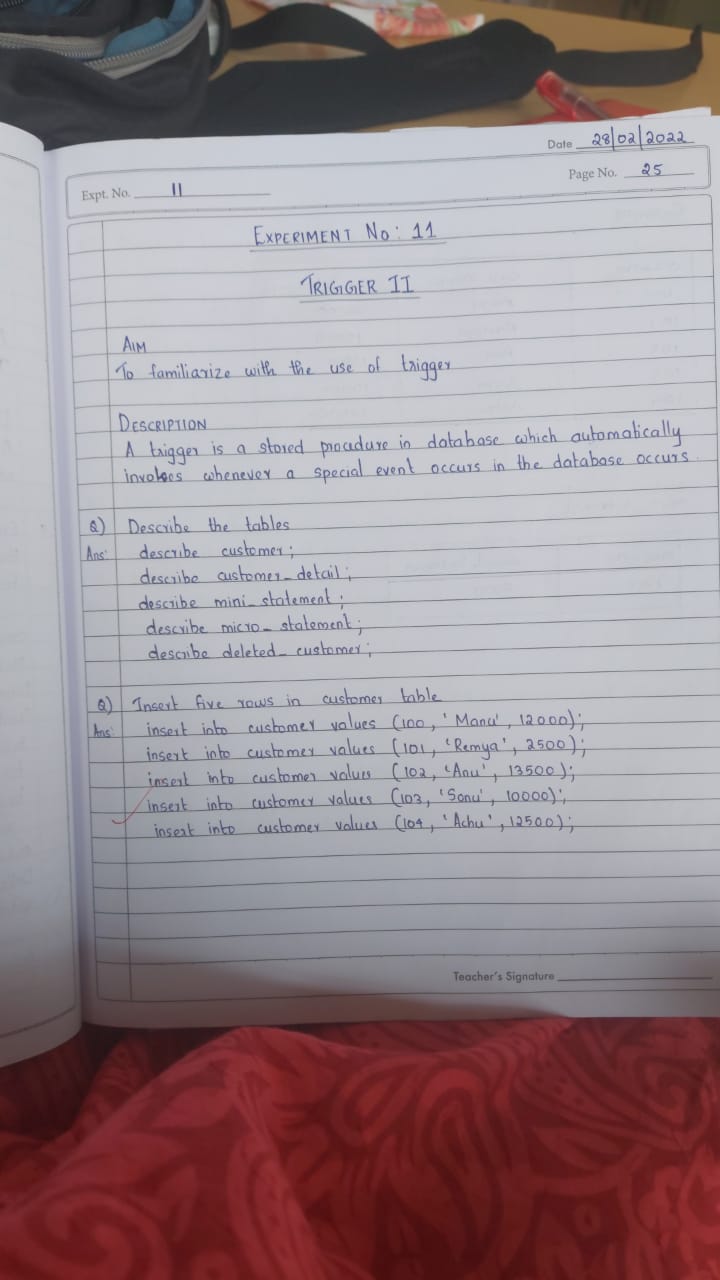 Date 28/02/2022
Expt. No. 11
Page No. 25
EXPERIMENT No: 11
TRIGGER II
AIM
To familiarize with the use of trigger
DESCRIPTION
A trigger is a stored procedure in database which automatically
invokes whenever a special event occurs in the database occurs
Q) Describe the tables
Ans: describe customer;
describe customer_detail;
describe mini_statement;
describe micro_statement;
describe deleted_customer;
Q) Insert five rows in customer table
Ans: insert into customer values (100, 'Manu', 12000);
insert into customer values (101, 'Remya', 2500);
insert into customer values (102, 'Anu', 13500);
insert into customer values (103, 'Sonu', 10000);
insert into customer values (104, 'Achu', 12500);
Teacher's Signature